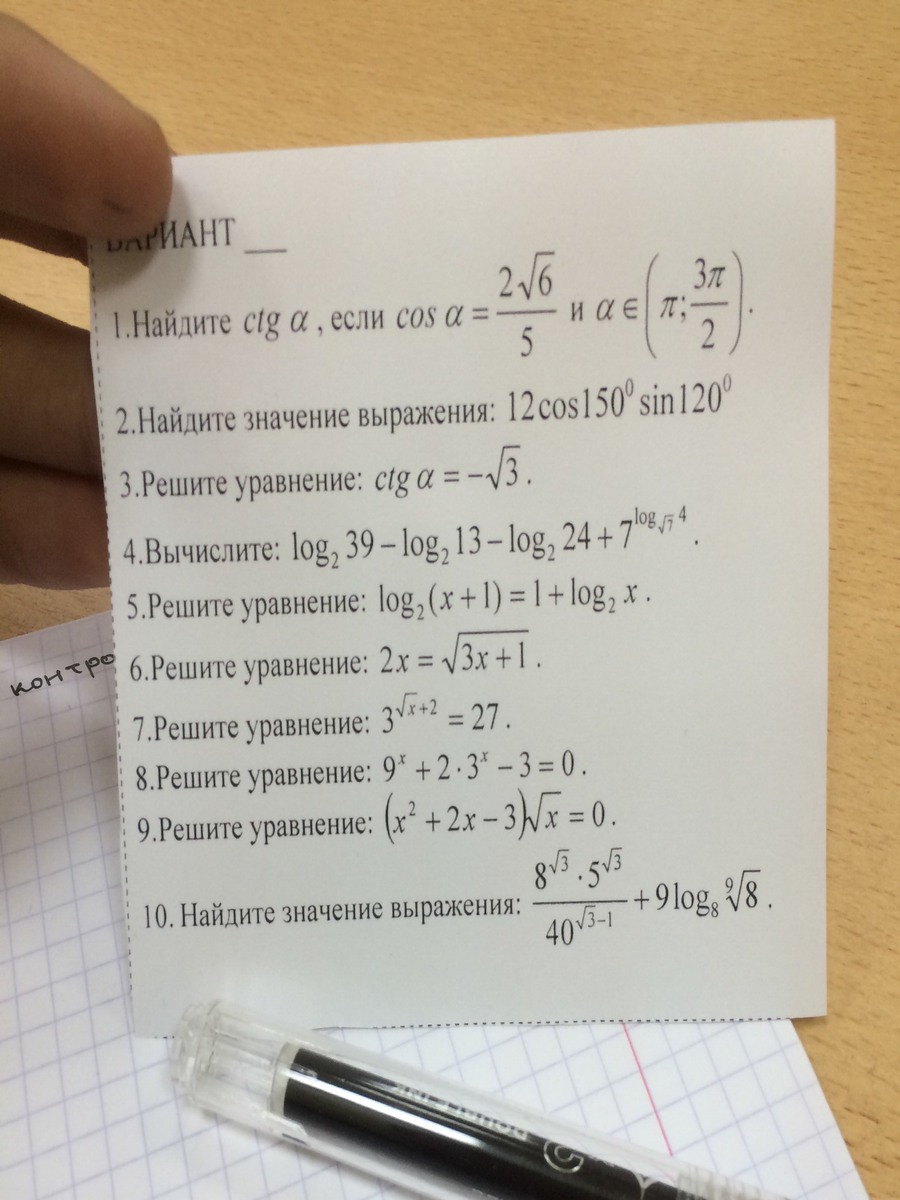 ВАРИАНТ __
1.Найдите ctg α , если cos α = 2√6/5 и α ∈ (π; 3π/2).
2.Найдите значение выражения: 12cos150⁰ sin120⁰
3.Решите уравнение: ctg α = −√3 .
4.Вычислите: log₂ 39 − log₂ 13 − log₂ 24 + 7^(log_√7 4) .
5.Решите уравнение: log₂(x + 1) = 1 + log₂ x .
6.Решите уравнение: 2x = √(3x + 1) .
7.Решите уравнение: 3^(√x+2) = 27 .
8.Решите уравнение: 9ˣ + 2 · 3ˣ − 3 = 0 .
9.Решите уравнение: (x² + 2x − 3)√x = 0 .
10. Найдите значение выражения: (8^√3 · 5^√3)/(40^(√3−1)) + 9 log₈ ⁹√8 .
контро